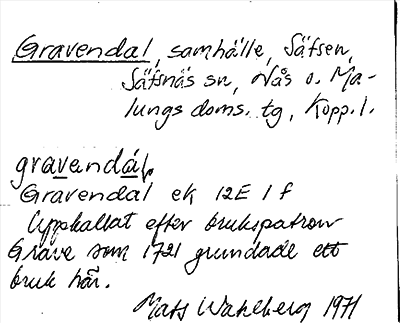 Gravendal, samhälle, Säfsen,
Säfsnäs sn, Nås o. Ma-
lungs doms. tg, Kopp. l.
gravendál,
Gravendal ek 12E 1 f
Uppkallat efter brukspatron
Grave som 1721 grundade ett
bruk här.
Mats Wahlberg 1971